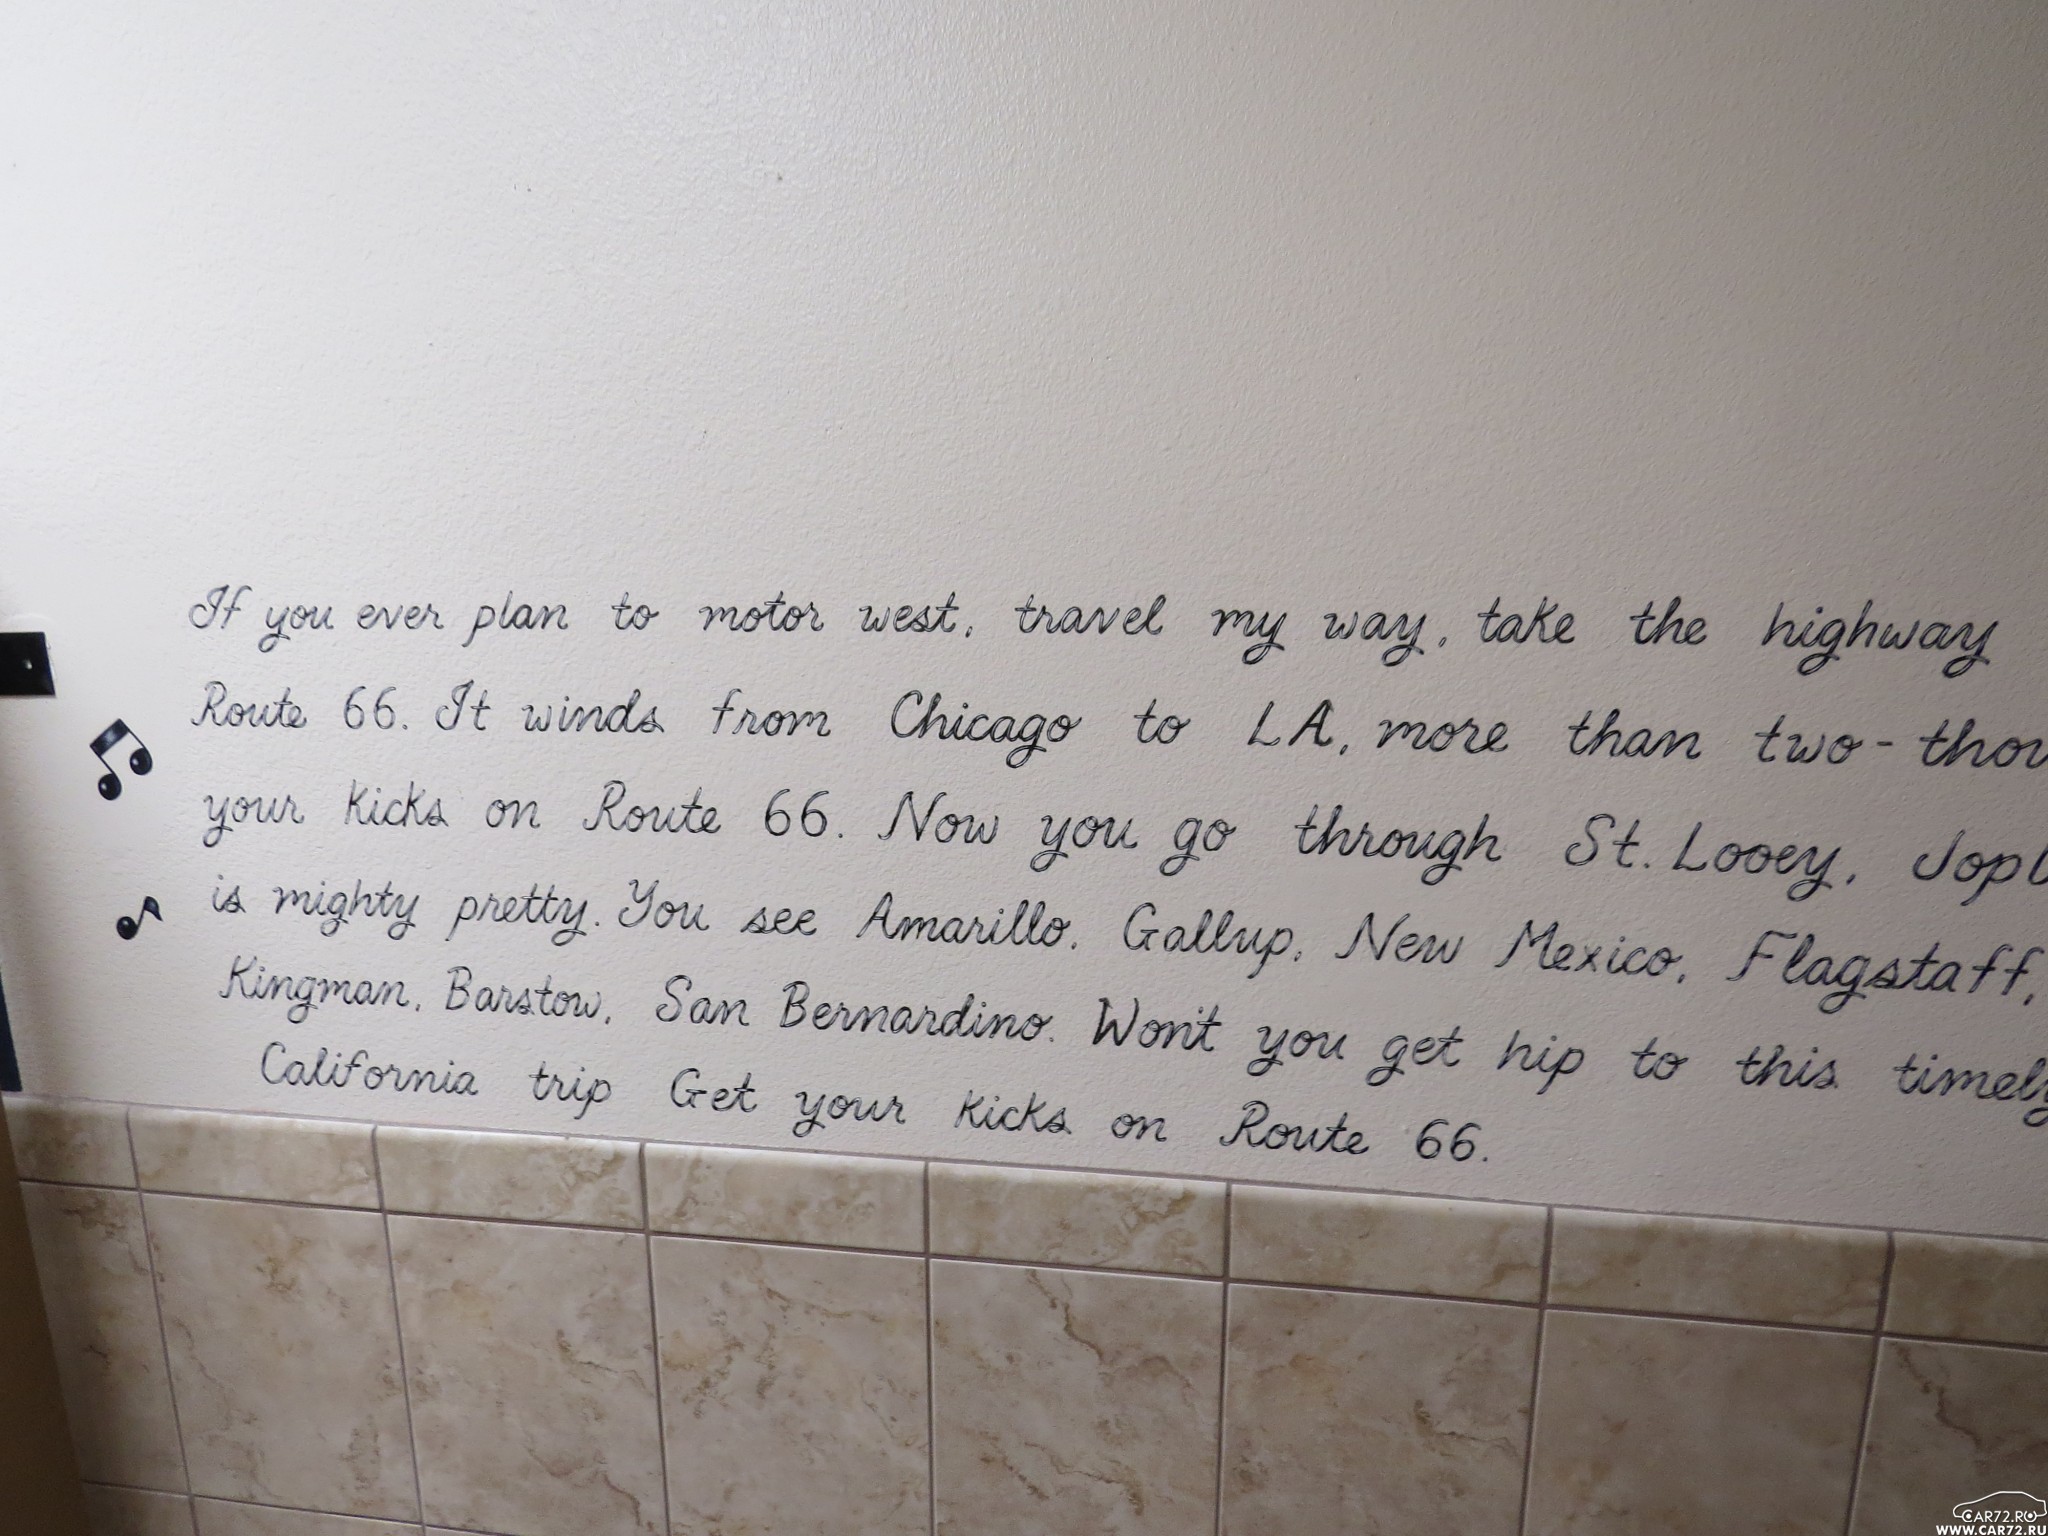 If you ever plan to motor west, travel my way, take the highway
Route 66. It winds from Chicago to LA, more than two-thou
your kicks on Route 66. Now you go through St. Looey, Jopl
is mighty pretty. You see Amarillo, Gallup, New Mexico, Flagstaff,
Kingman, Barstow, San Bernardino. Won't you get hip to this timely
California trip Get your kicks on Route 66.
CAR72.RU
WWW.CAR72.RU